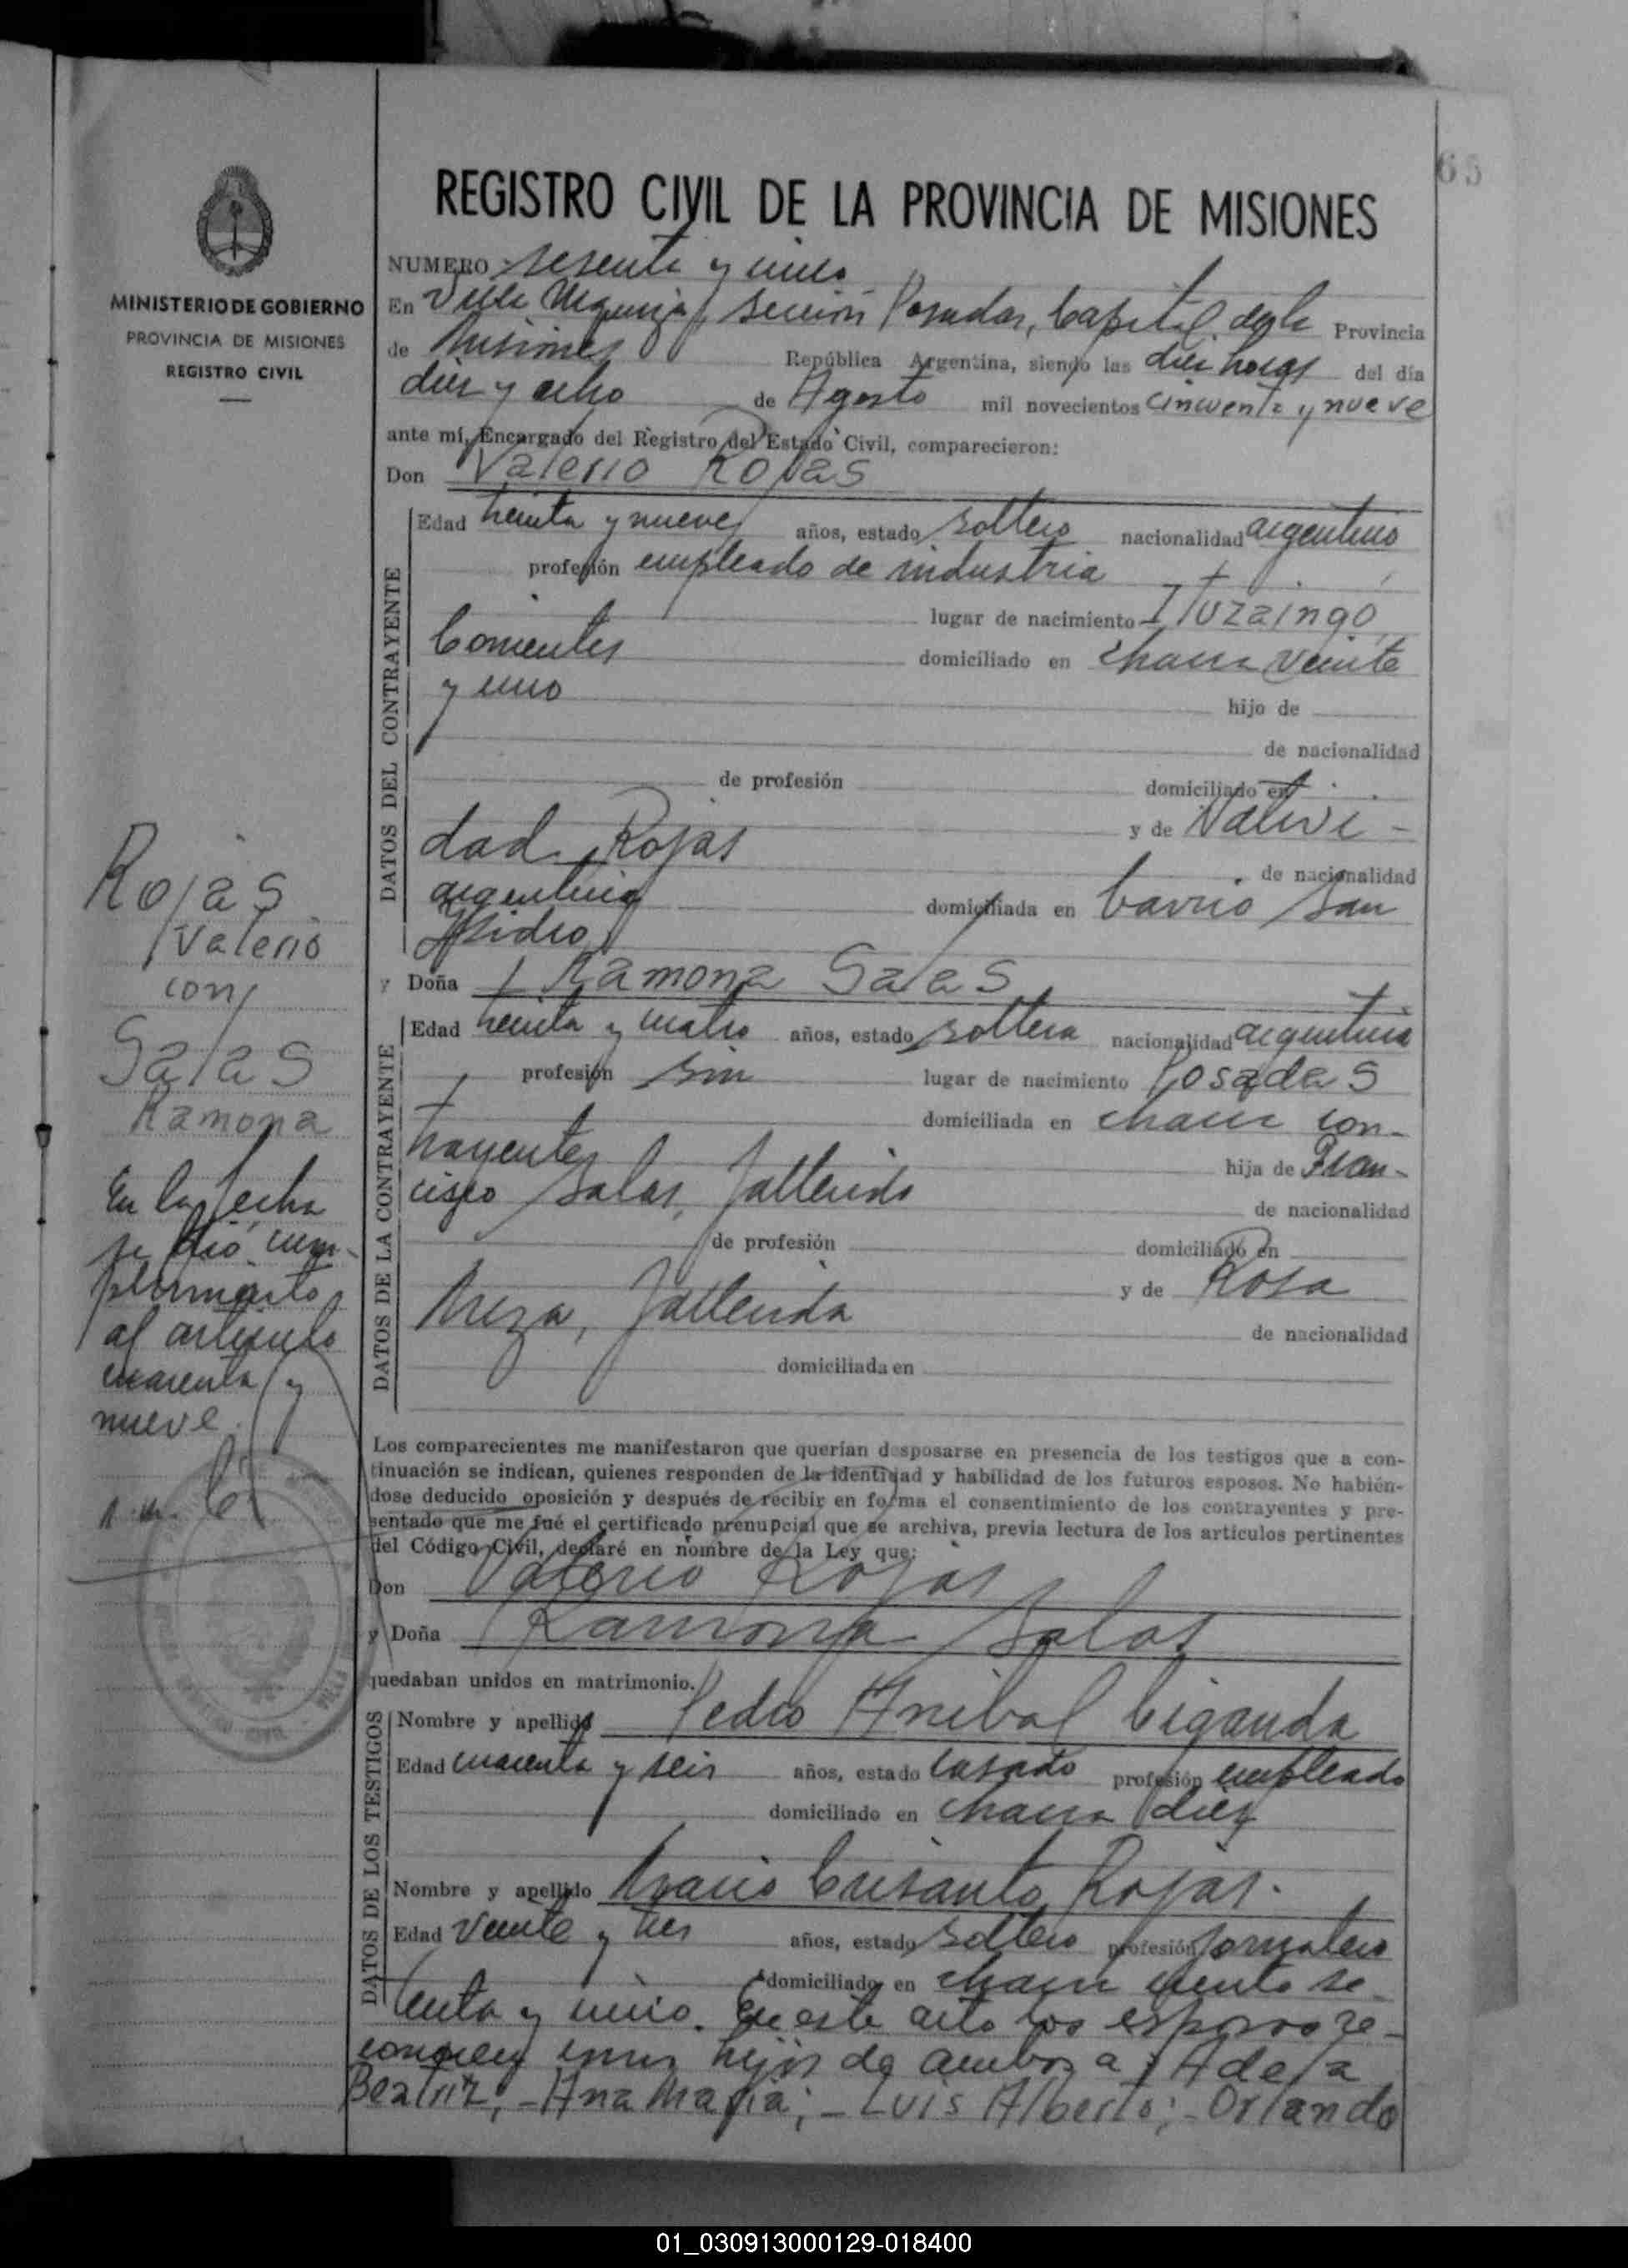 65
REGISTRO CIVIL DE LA PROVINCIA DE MISIONES
MINISTERIO DE GOBIERNO
PROVINCIA DE MISIONES
REGISTRO CIVIL
NUMERO sesenta y uno
En Villa Urquiza, Sección Posadas, Capital de la Provincia
de Misiones República Argentina, siendo las diez horas del día
diez y ocho de Agosto mil novecientos cincuenta y nueve
ante mí, Encargado del Registro del Estado Civil, comparecieron:
Don Valerio Rojas
DATOS DEL CONTRAYENTE
Edad treinta y nueve años, estado soltero nacionalidad argentino
profesión empleado de industria
lugar de nacimiento Ituzaingó,
Corrientes domiciliado en chacra veinte
y uno hijo de
de nacionalidad
de profesión domiciliado en
y de Nativi-
dad Rojas de nacionalidad
argentina domiciliada en barrio San
Isidro
y Doña Ramona Salas
DATOS DE LA CONTRAYENTE
Edad treinta y cuatro años, estado soltera nacionalidad argentina
profesión sin lugar de nacimiento Posadas
domiciliada en chacra con-
trayente hija de Fran-
cisco Salas, fallecido de nacionalidad
de profesión domiciliado en
y de Rosa
Meza, fallecida de nacionalidad
domiciliada en
Rojas
Valerio
con
Salas
Ramona
En la fecha
se dió cum-
plimiento
al artículo
cuarenta y
nueve.
Los comparecientes me manifestaron que querían desposarse en presencia de los testigos que a con-
tinuación se indican, quienes responden de la identidad y habilidad de los futuros esposos. No habién-
dose deducido oposición y después de recibir en forma el consentimiento de los contrayentes y pre-
sentado que me fué el certificado prenupcial que se archiva, previa lectura de los artículos pertinentes
del Código Civil, declaré en nombre de la Ley que:
Don Valerio Rojas
y Doña Ramona Salas
quedaban unidos en matrimonio.
DATOS DE LOS TESTIGOS
Nombre y apellido Pedro Anibal Ciganda
Edad cuarenta y seis años, estado casado profesión empleado
domiciliado en chacra diez
Nombre y apellido Mario Crisanto Rojas.
Edad veinte y tres años, estado soltero profesión jornalero
domiciliado en chacra ciento se-
tenta y uno. En este acto los esposos re-
conocen como hijos de ambos a: Adela
Beatriz; - Ana María; - Luis Alberto; - Orlando
01_030913000129-018400